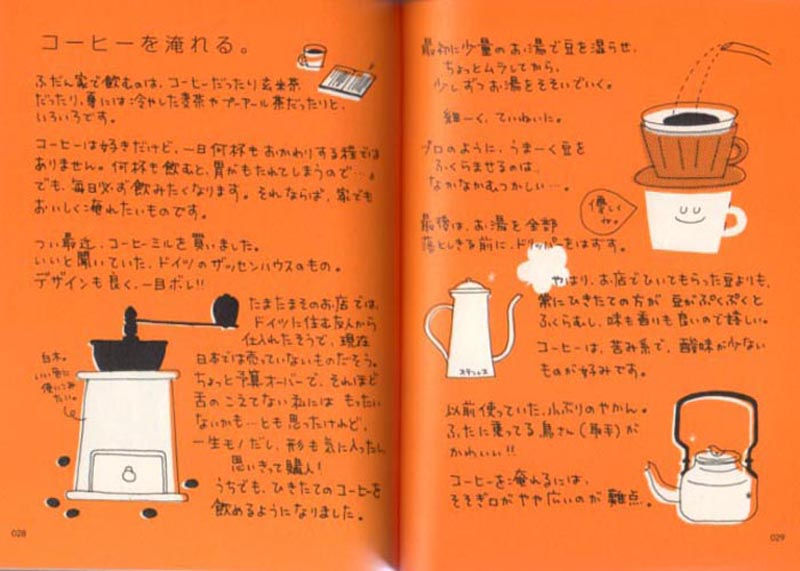 コーヒーを淹れる。
ふだん家で飲むのは、コーヒーだったり玄米茶
だったり、夏には冷やした麦茶やプーアール茶だったりと、
いろいろです。
コーヒーは好きだけど、一日何杯もおかわりする程では
ありません。何杯も飲むと、胃がもたれてしまうので…。
でも、毎日必ず飲みたくなります。それならば、家でも
おいしく淹れたいものです。
つい最近、コーヒーミルを買いました。
いいと聞いていた、ドイツのザッセンハウスのもの。
デザインも良く、一目ボレ!!
たまたまそのお店では、
ドイツに住む友人から
仕入れたそうで、現在
日本では売っていないものだそう。
ちょっと予算オーバーで、それほど
舌のこえてない私には もったい
ないかも…とも思ったけれど、
一生モノだし、形も気に入ったし
思いきって購入!
うちでも、ひきたてのコーヒーを
飲めるようになりました。
白木。
いい色に
使いこみ
たい。
028
最初に少量のお湯で豆を湿らせ、
ちょっとムラしてから、
少しずつお湯をそそいでいく。
細ーく、ていねいに。
プロのように、うまーく豆を
ふくらませるのは、
なかなかむつかしい…。
優しく
ね。
最後は、お湯を全部
落としきる前に、ドリッパーをはずす。
やはり、お店でひいてもらった豆よりも、
常にひきたての方が 豆がぷくぷくと
ふくらむし、味も香りも良いので嬉しい。
コーヒーは、苦み系で、酸味が少ない
ものが好みです。
ステンレス
以前使っていた、小ぶりのやかん。
ふたに乗ってる鳥さん(取手)が
かわいい!!
コーヒーを淹れるには、
そそぎ口がやや広いのが 難点。
029